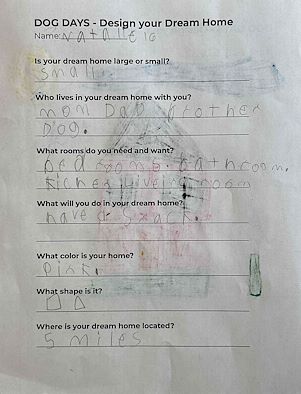 DOG DAYS - Design your Dream Home
Name: Natalie
Is your dream home large or small?
small.
Who lives in your dream home with you?
mom Dad brother
Dog.
What rooms do you need and want?
bedrooms. bathroom.
kichen liveing room
What will you do in your dream home?
have a snack.
What color is your home?
pink.
What shape is it?
Where is your dream home located?
5 miles